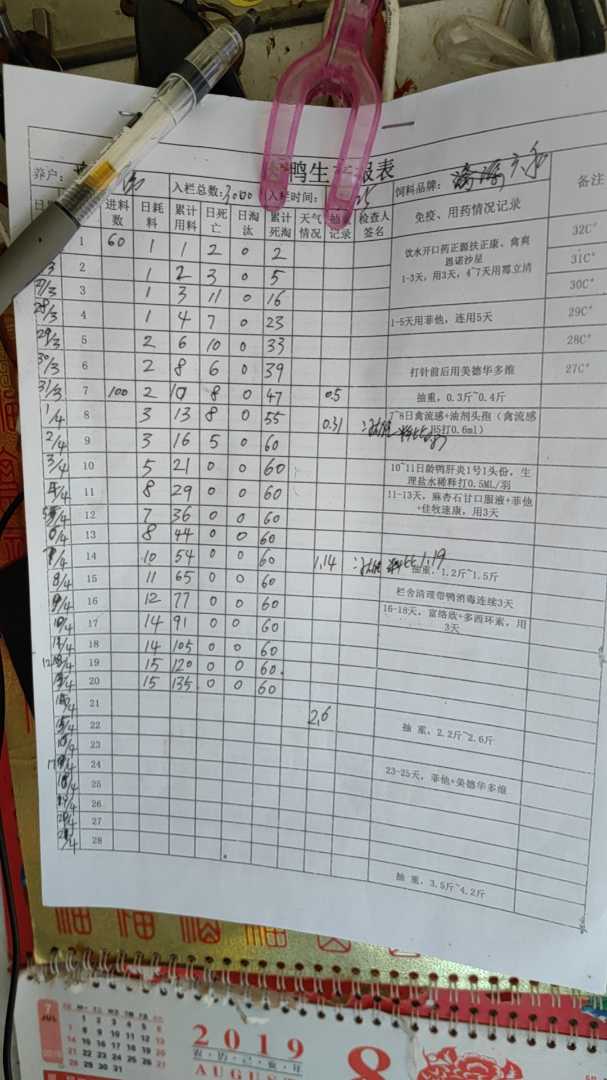 鸭生产报表
养户：
入栏总数：3000 入栏时间： 25 饲料品牌：
备注
日期 进料数 日耗料 累计用料 日死亡 日淘汰 累计死淘 天气情况 抽重记录 检查人签名 免疫、用药情况记录
1 60 1 1 2 0 2 饮水开口药正源扶正康、禽爽恩诺沙星 32C°
2 1 2 3 0 5 1-3天，用3天，4~7天用霉立清 31C°
27/3 3 1 3 11 0 16 30C°
28/3 4 1 4 7 0 23 1-5天用菲他，连用5天 29C°
29/3 5 2 6 10 0 33 28C°
30/3 6 2 8 6 0 39 打针前后用美德华多维 27C°
31/3 7 100 2 10 8 0 47 0.5 抽重，0.3斤~0.4斤
1/4 8 3 13 8 0 55 0.31 7~8日禽流感+油剂头孢（禽流感
2/4 9 3 16 5 0 60 打0.6ml）
3/4 10 5 21 0 0 60 10~11日龄鸭肝炎1号1头份，生理盐水稀释打0.5ML/羽
4/4 11 8 29 0 0 60 11-13天，麻杏石甘口服液+菲他+佳牧速康，用3天
5/4 12 7 36 0 0 60
6/4 13 8 44 0 0 60
7/4 14 10 54 0 0 60 1.14 料比1.19 抽重，1.2斤~1.5斤
8/4 15 11 65 0 0 60 栏舍清理带鸭消毒连续3天
9/4 16 12 77 0 0 60 16-18天，富络欣+多西环素，用3天
10/4 17 14 91 0 0 60
11/4 18 14 105 0 0 60
12/4 19 15 120 0 0 60
13/4 20 15 135 0 0 60
14/4 21 2.6
15/4 22 抽重，2.2斤~2.6斤
16/4 23
17/4 24 23-25天，菲他+美德华多维
18/4 25
19/4 26
20/4 27
21/4 28
抽重，3.5斤~4.2斤
福 福 福
7 JUL
2019
农历己亥年
AUGUST
8